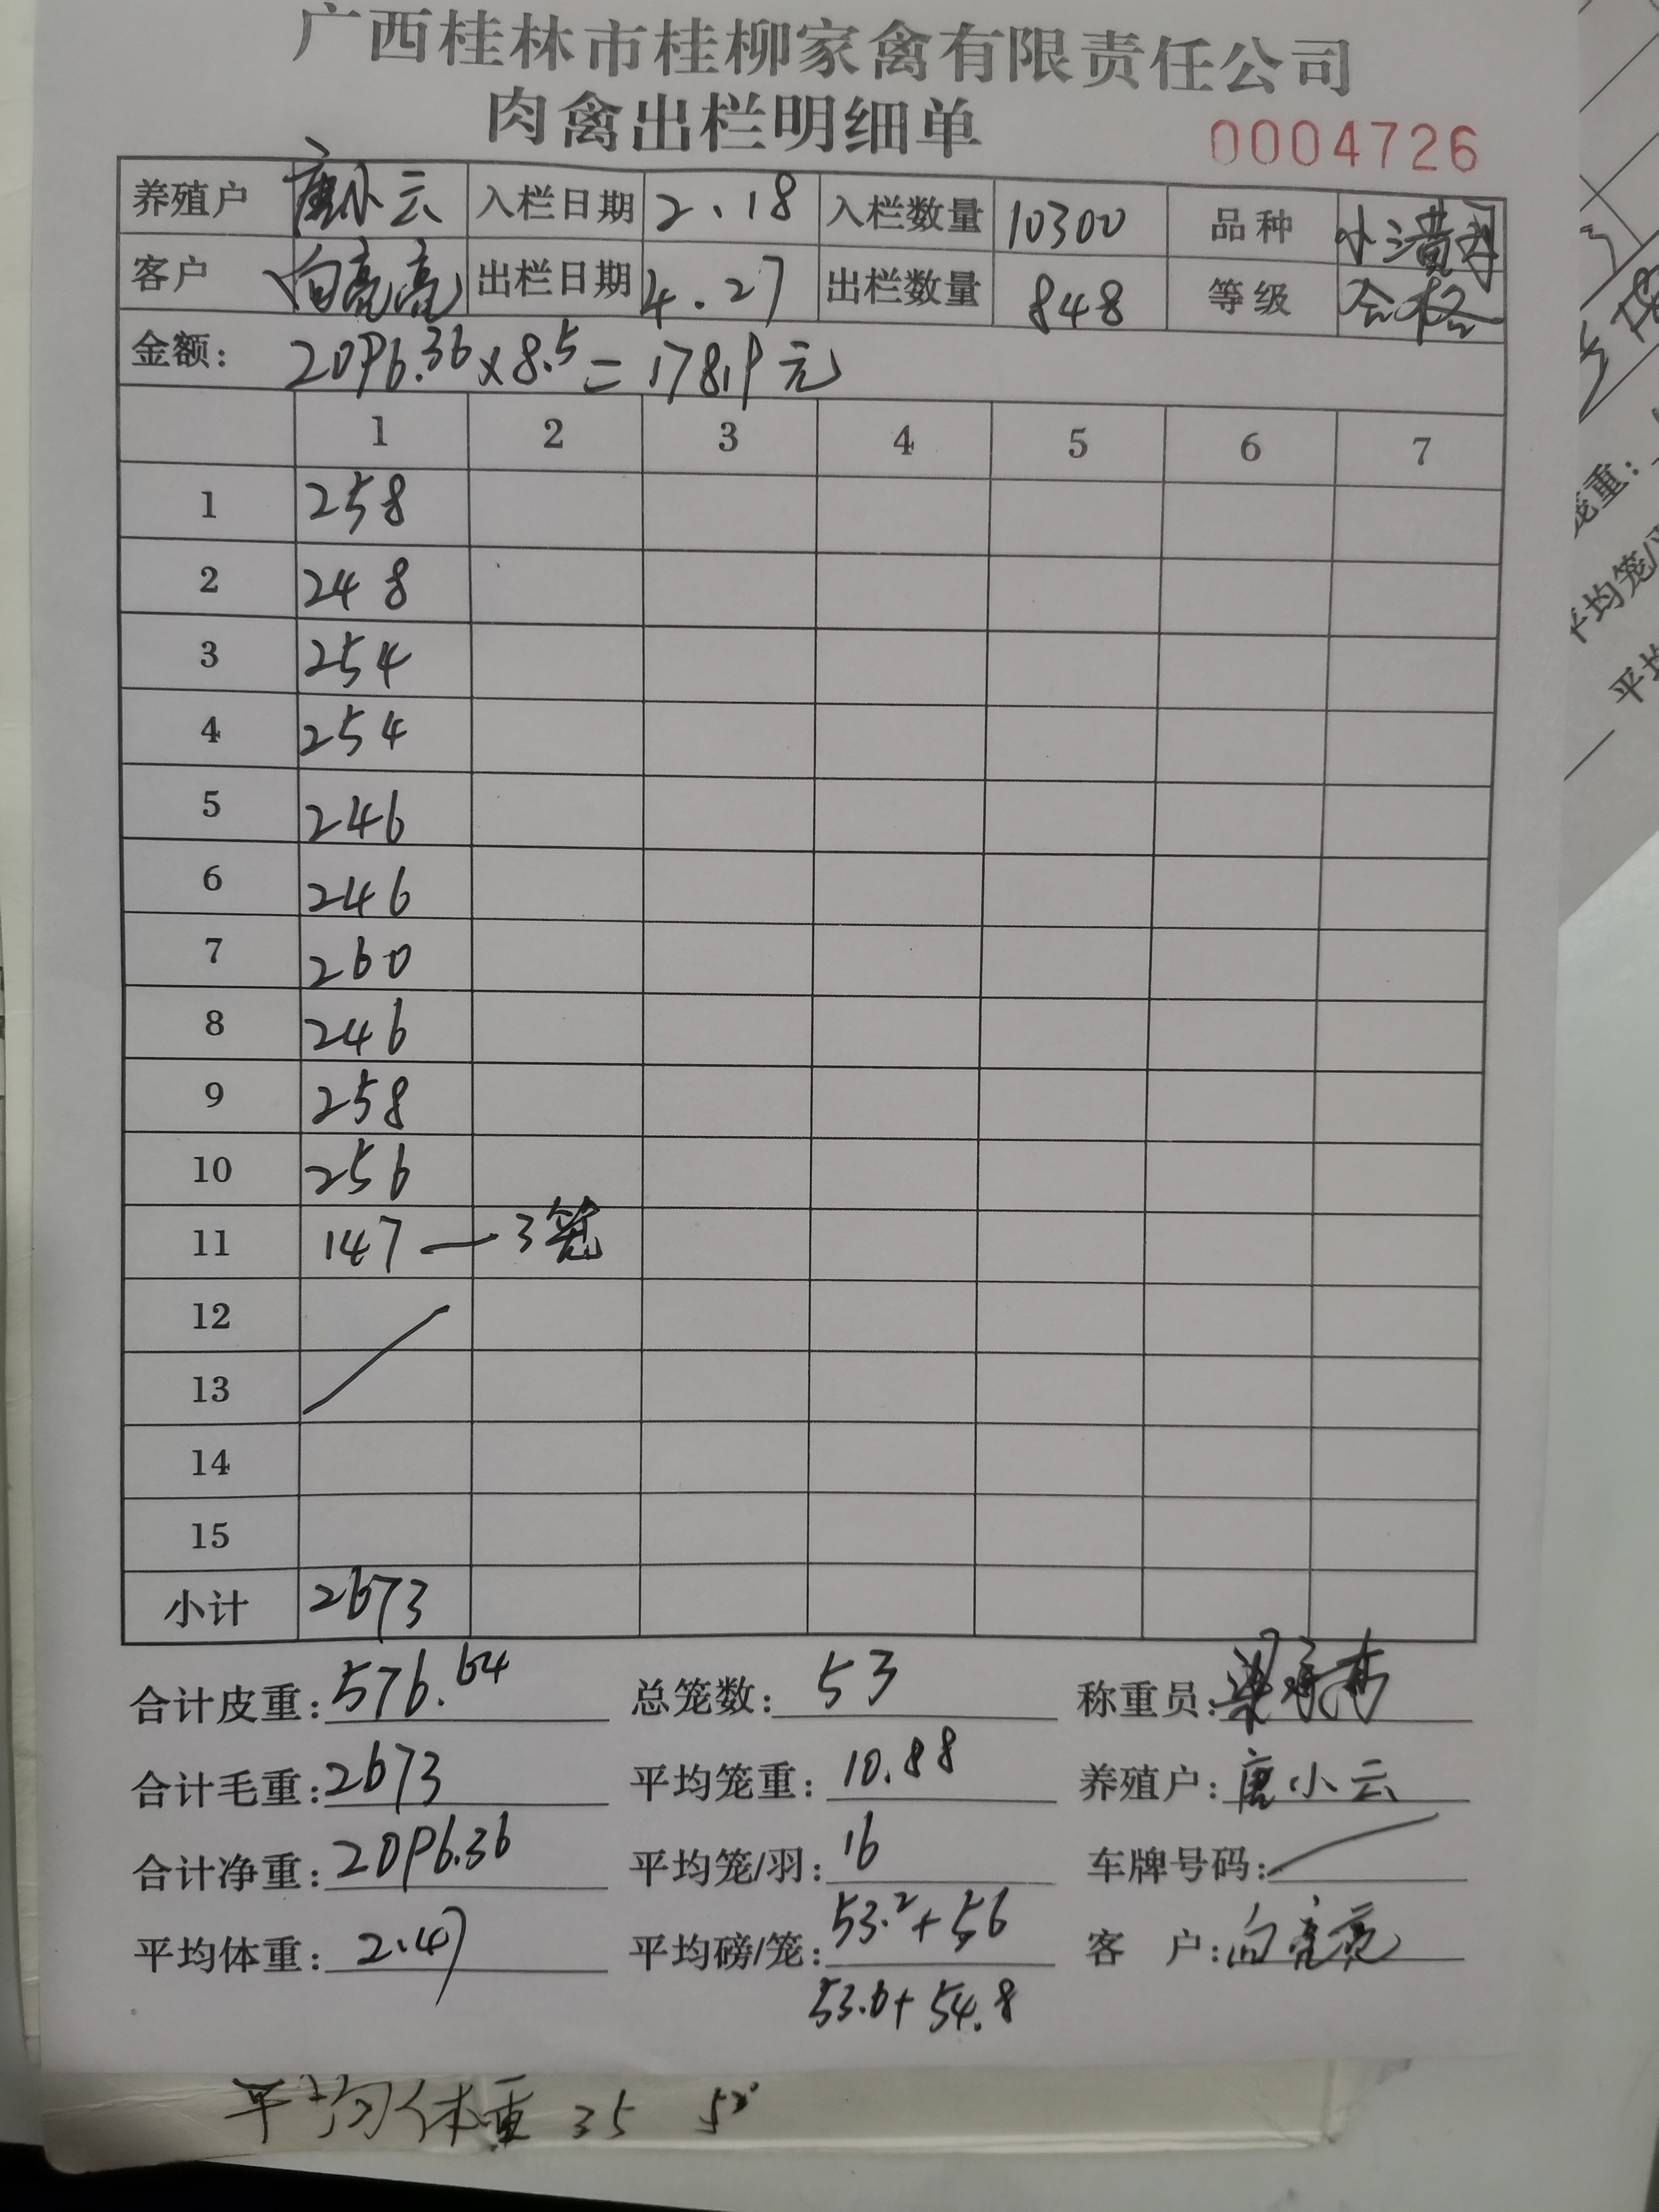 广西桂林市桂柳家禽有限责任公司
肉禽出栏明细单 0004726
养殖户 唐小云 入栏日期 2.18 入栏数量 10300 品种 小黄
客户 向亮亮 出栏日期 4.27 出栏数量 848 等级 合格
金额: 2096.36×8.5=17819元
1 2 3 4 5 6 7
1 258
2 248
3 254
4 254
5 246
6 246
7 260
8 246
9 258
10 256
11 147 — 3笼
12
13
14
15
小计 2673
合计皮重: 576.64 总笼数: 53 称重员: 梁
合计毛重: 2673 平均笼重: 10.88 养殖户: 唐小云
合计净重: 2096.36 平均笼/羽: 16 车牌号码:
平均体重: 2.47 平均磅/笼: 53.2+56 客 户: 向亮亮
53.6+54.8
平均体重 35
笼重:
平均笼/
平均